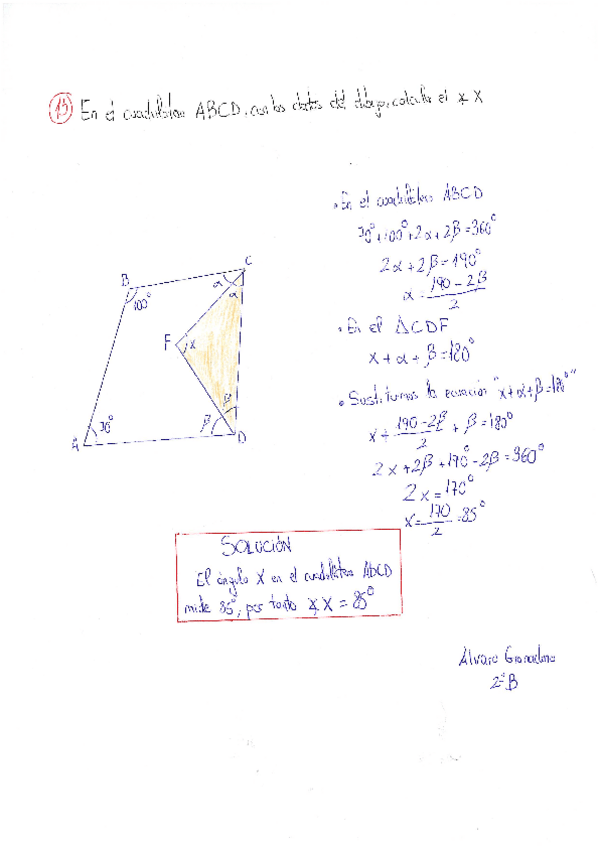 13 En el cuadrilátero ABCD, con los datos del dibujo, calcula el ∡ X
• En el cuadrilátero ABCD
70° + 100° + 2α + 2β = 360°
2α + 2β = 190°
α = (190 - 2β)/2
• En el ΔCDF
x + α + β = 180°
• Sustituimos la ecuación "x + α + β = 180°"
x + (190 - 2β)/2 + β = 180°
2x + 2β + 190° - 2β = 360°
2x = 170°
x = 170/2 = 85°
C
B
α
α
100°
F
x
β
β
A
70°
D
SOLUCIÓN
El ángulo X en el cuadrilátero ABCD
mide 85°, por tanto ∡ X = 85°
Alvaro
2º B